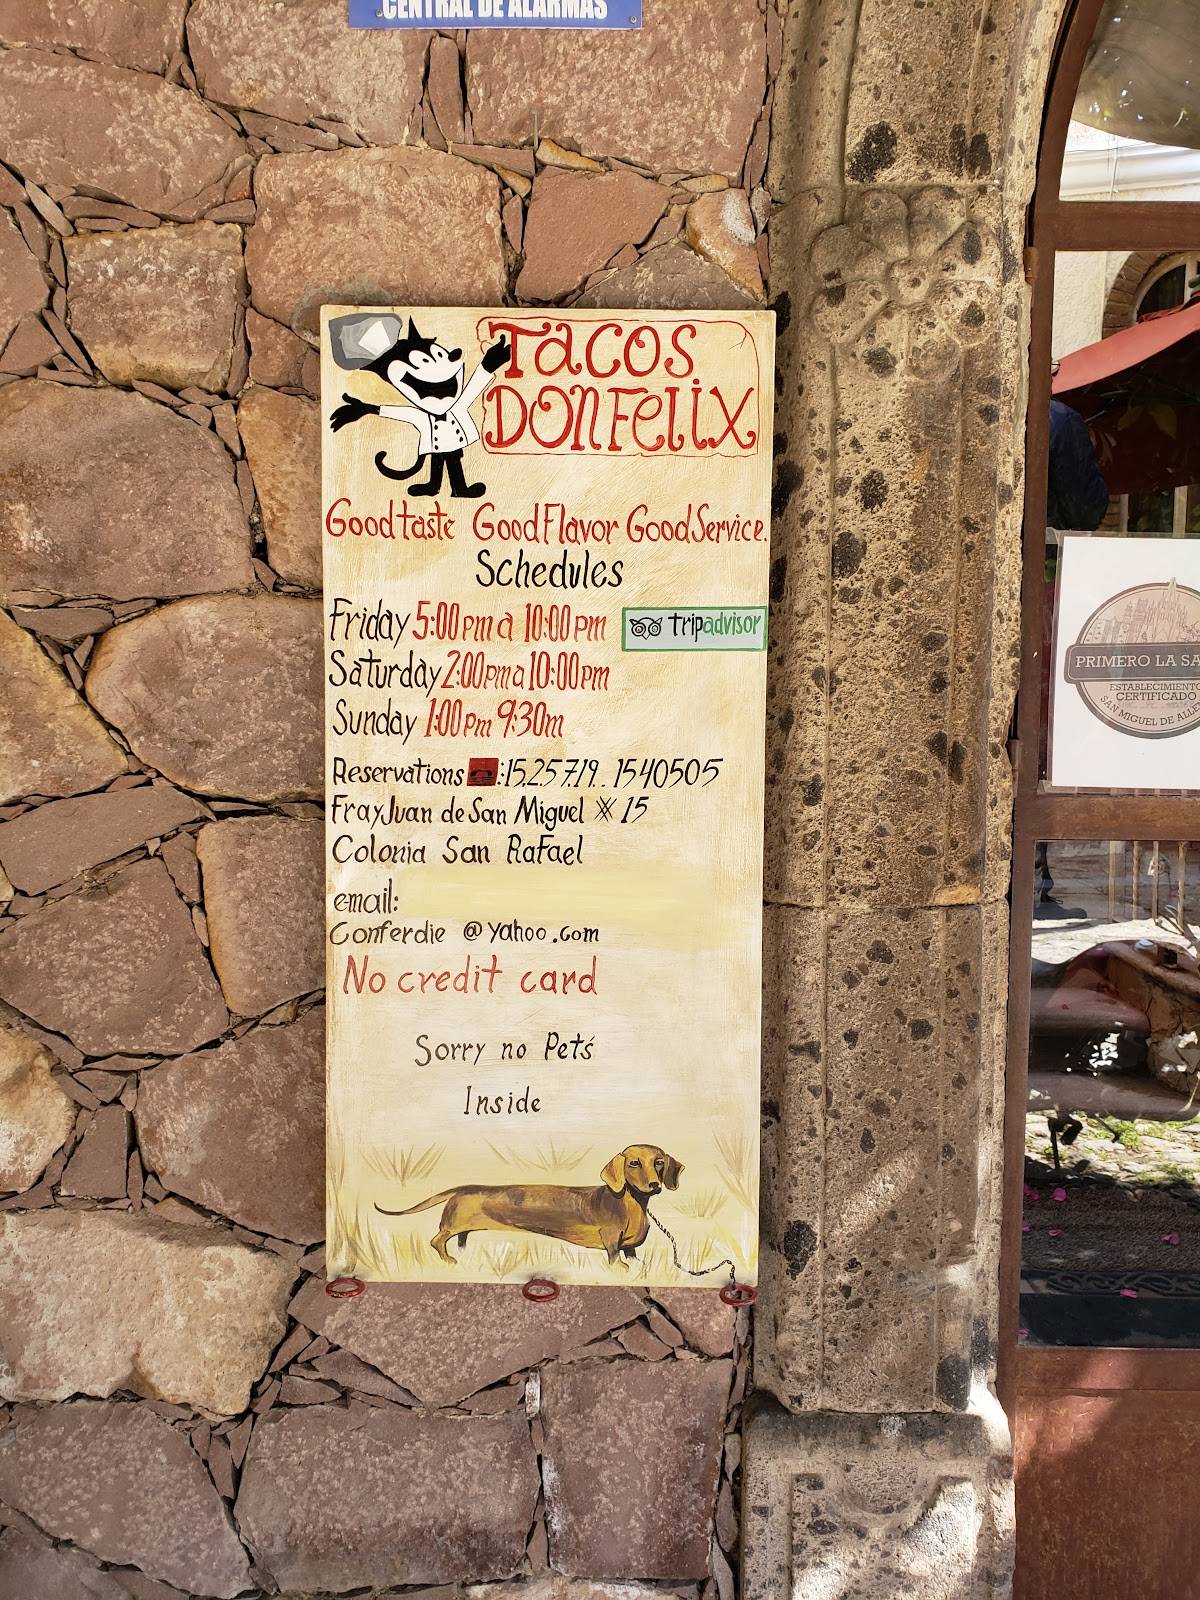 CENTRAL DE ALARMAS
Tacos
Don Felix
Good taste Good Flavor Good Service.
Schedules
Friday 5:00 pm a 10:00 pm
tripadvisor
Saturday 2:00 pm a 10:00 pm
Sunday 1:00 pm 9:30m
Reservations :15.2.57.19.. 1540505
Fray Juan de San Miguel # 15
Colonia San Rafael
email:
Conferdie @ yahoo.com
No credit card
Sorry no Pet's
Inside
PRIMERO LA SA
ESTABLECIMIENTO
CERTIFICADO
SAN MIGUEL DE ALLE